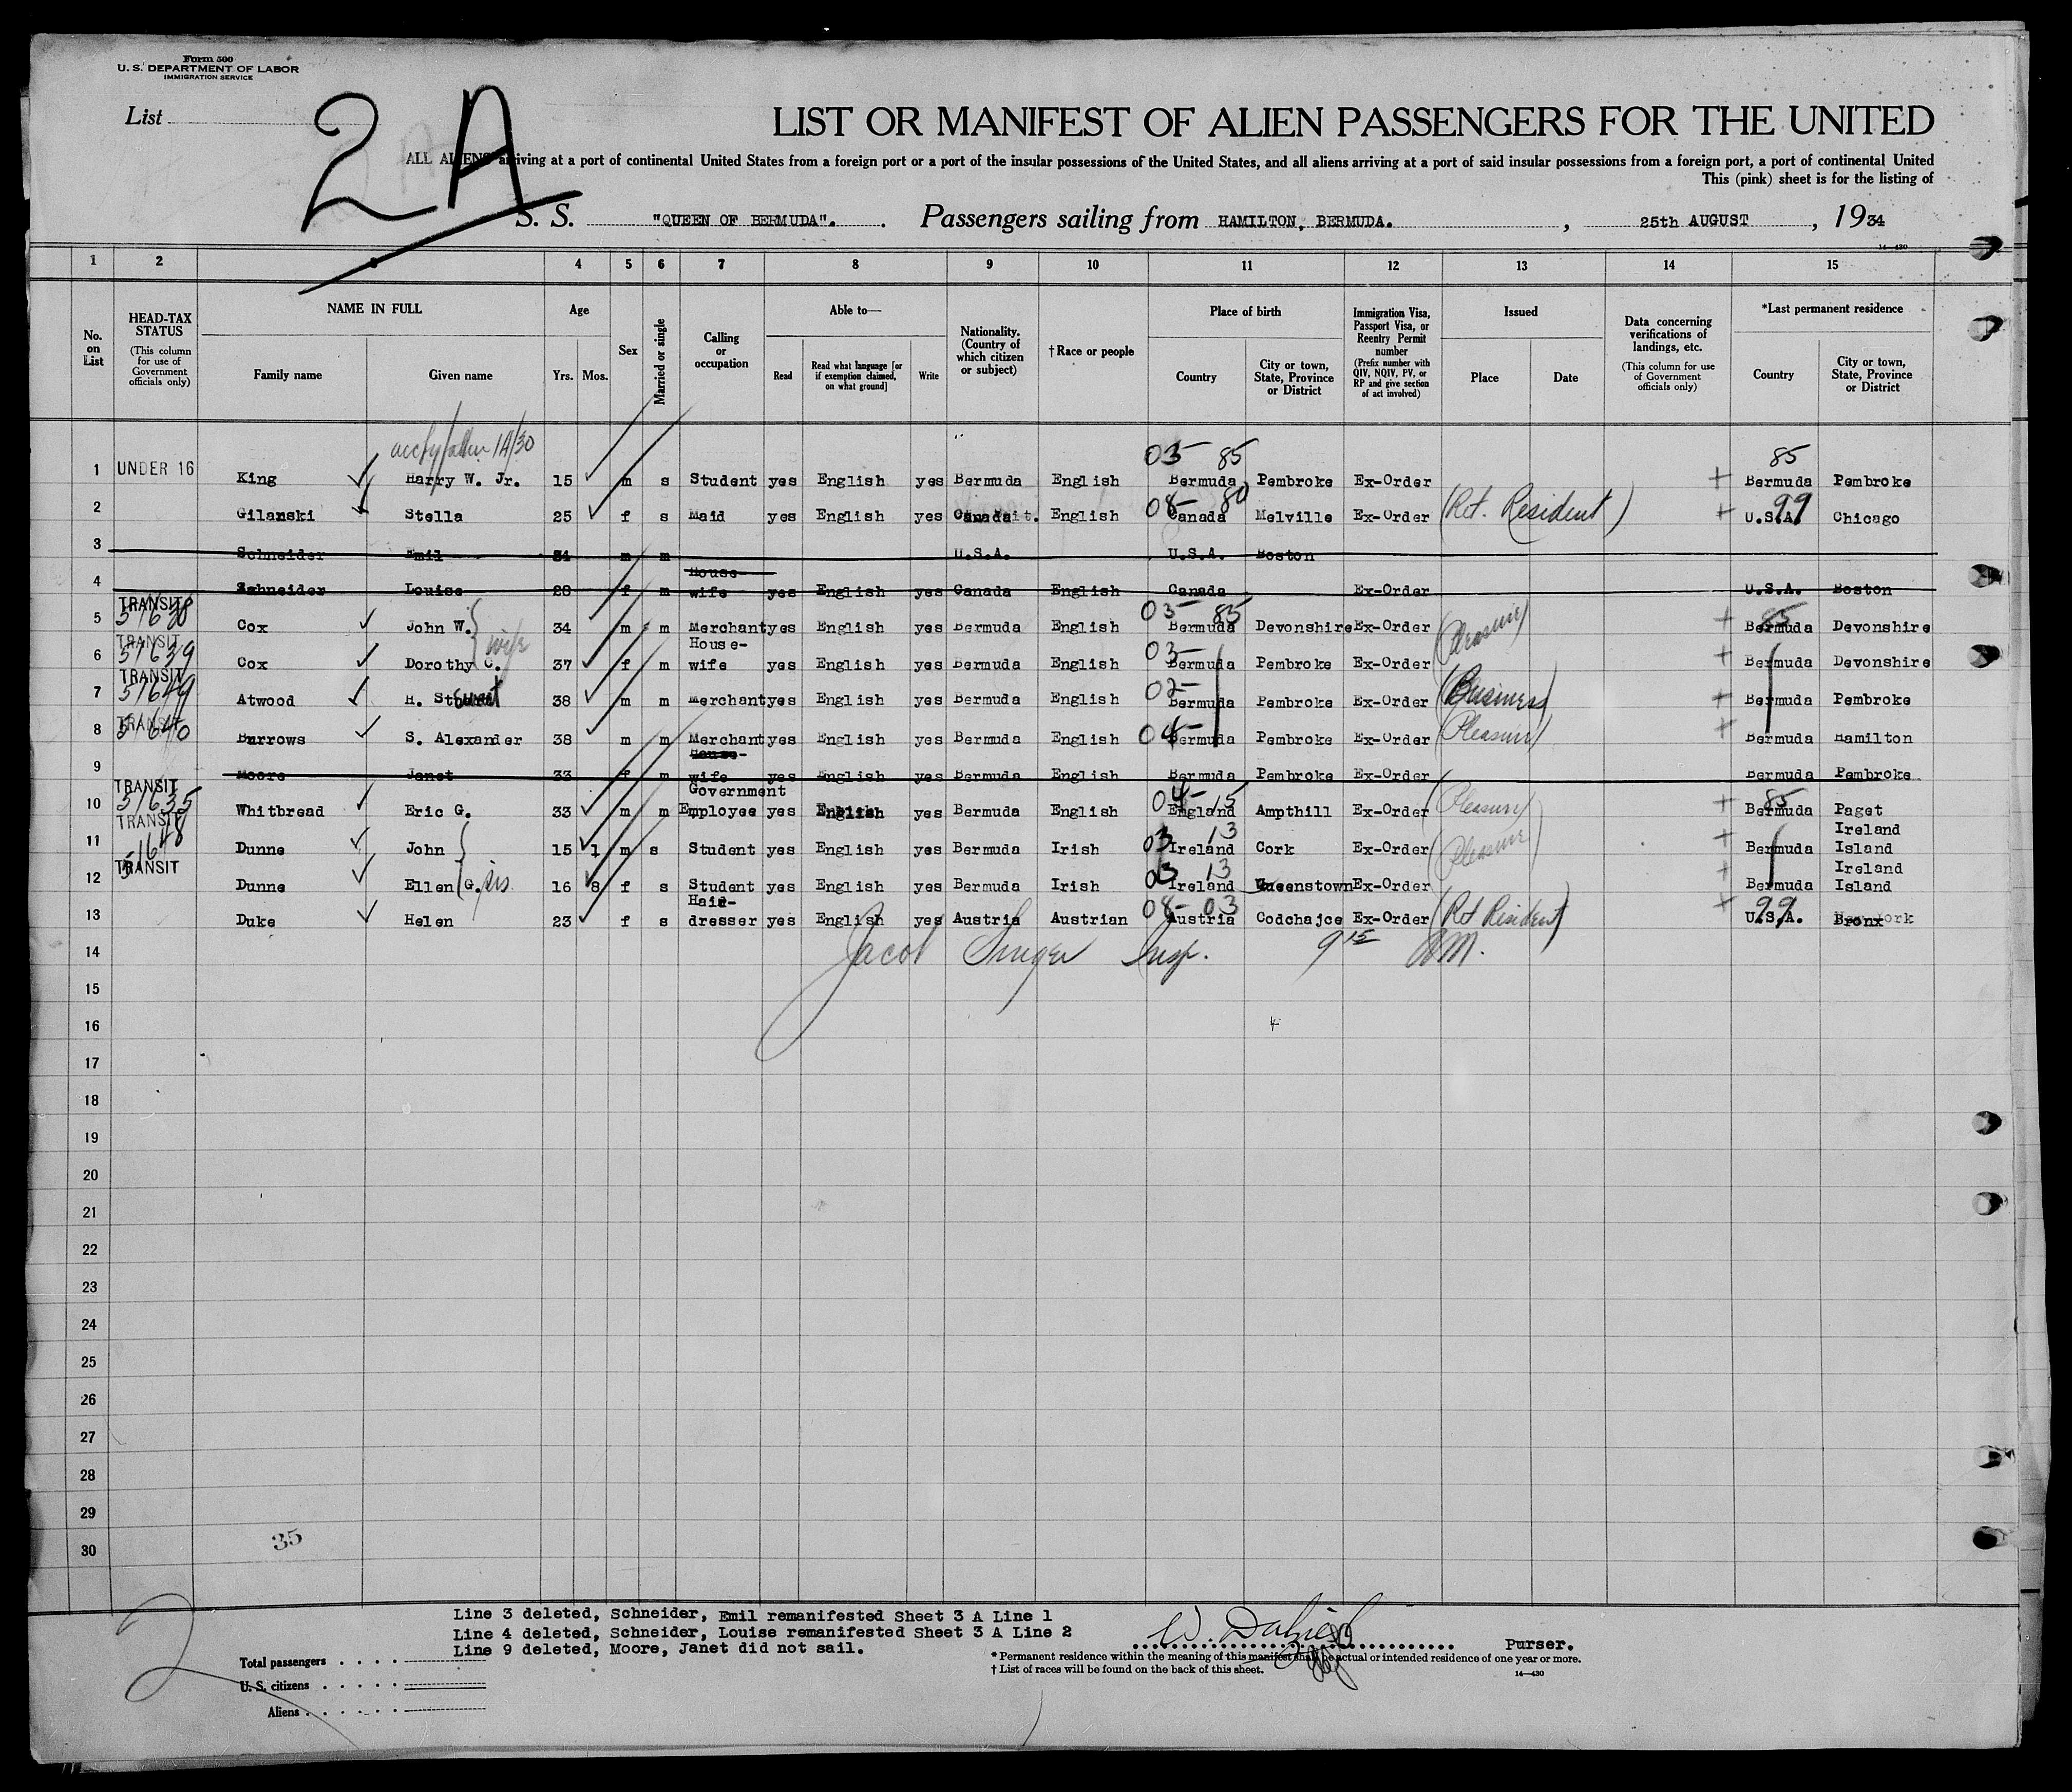 Form 500
U. S. DEPARTMENT OF LABOR
IMMIGRATION SERVICE
List
2A
LIST OR MANIFEST OF ALIEN PASSENGERS FOR THE UNITED
ALL ALIENS arriving at a port of continental United States from a foreign port or a port of the insular possessions of the United States, and all aliens arriving at a port of said insular possessions from a foreign port, a port of continental United
This (pink) sheet is for the listing of
S. S. "QUEEN OF BERMUDA". Passengers sailing from HAMILTON, BERMUDA. , 25th AUGUST , 1934
14—430
1 2 3 4 5 6 7 8 9 10 11 12 13 14 15
No. on List
HEAD-TAX STATUS
(This column for use of Government officials only)
NAME IN FULL
Family name Given name
Age
Yrs. Mos.
Sex
Married or single
Calling or occupation
Able to—
Read
Read what language [or if exemption claimed, on what ground]
Write
Nationality. (Country of which citizen or subject)
† Race or people
Place of birth
Country
City or town, State, Province or District
Immigration Visa, Passport Visa, or Reentry Permit number
(Prefix number with QIV, NQIV, PV, or RP and give section of act involved)
Issued
Place Date
Data concerning verifications of landings, etc.
(This column for use of Government officials only)
*Last permanent residence
Country
City or town, State, Province or District
1A/30
03- 85 85
1 UNDER 16 King Harry W. Jr. 15 m s Student yes English yes Bermuda English Bermuda Pembroke Ex-Order + Bermuda Pembroke
2 Gilanski Stella 25 f s Maid yes English yes Canada English 08- 80 Canada Melville Ex-Order (Ret. Resident) + U.S.A. 99 Chicago
3 Schneider Emil 34 m m U.S.A. U.S.A. Boston
4 Schneider Louise 28 f m House-wife yes English yes Canada English Canada Ex-Order U.S.A. Boston
5 TRANSIT Cox John W. 34 m m Merchant yes English yes Bermuda English 03- 85 Bermuda Devonshire Ex-Order (Pleasure) + 85 Bermuda Devonshire
6 TRANSIT 51639 Cox Dorothy C. wife 37 f m House-wife yes English yes Bermuda English 03- Bermuda Pembroke Ex-Order + Bermuda Devonshire
7 TRANSIT 51649 Atwood H. Stewart 38 m m Merchant yes English yes Bermuda English 02- Bermuda Pembroke Ex-Order (Business) + Bermuda Pembroke
8 TRANSIT 51640 Burrows S. Alexander 38 m m Merchant yes English yes Bermuda English 04- Bermuda Pembroke Ex-Order (Pleasure) + Bermuda Hamilton
9 Moore Janet 33 f m House-wife yes English yes Bermuda English Bermuda Pembroke Ex-Order Bermuda Pembroke
10 TRANSIT 51635 Whitbread Eric G. 33 m m Government Employee yes English yes Bermuda English 04- 15 England Ampthill Ex-Order (Pleasure) + 85 Bermuda Paget
11 TRANSIT 51648 Dunne John 15 1 m s Student yes English yes Bermuda Irish 03 13 Ireland Cork Ex-Order (Pleasure) + Bermuda Ireland Island
12 TRANSIT Dunne Ellen G. sis 16 8 f s Student yes English yes Bermuda Irish 03 13 Ireland Queenstown Ex-Order + Bermuda Ireland Island
13 Duke Helen 23 f s Hair-dresser yes English yes Austria Austrian 08- 03 Austria Codchajce Ex-Order (Ret Resident) + 99 U.S.A. Bronx
14 Jacob Singer Insp. 9 15 AM.
15
16
17
18
19
20
21
22
23
24
25
26
27
28
29
30
35
Line 3 deleted, Schneider, Emil remanifested Sheet 3 A Line 1
Line 4 deleted, Schneider, Louise remanifested Sheet 3 A Line 2
Line 9 deleted, Moore, Janet did not sail.
Purser.
Total passengers
U. S. citizens
Aliens
* Permanent residence within the meaning of this manifest shall be actual or intended residence of one year or more.
† List of races will be found on the back of this sheet.
14—430